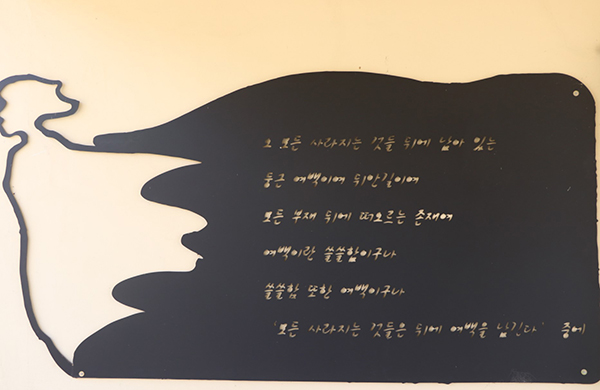 오 모든 사라지는 것들 뒤에 남아 있는
둥근 여백이여 뒤안길이여
모든 부재 뒤에 떠오르는 존재여
여백이란 쓸쓸함이구나
쓸쓸함 또한 여백이구나
'모든 사라지는 것들은 뒤에 여백을 남긴다' 중에